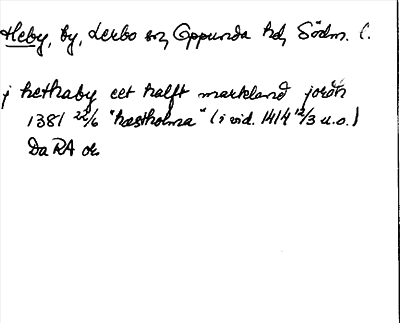 Heby, by, Lerbo sn, Oppunda hd, Södm. l.
j hethaby eet halft markland jordh
1381 22/6 "hæstholma" (i vid. 1414 12/3 u.o.)
Da RA or.